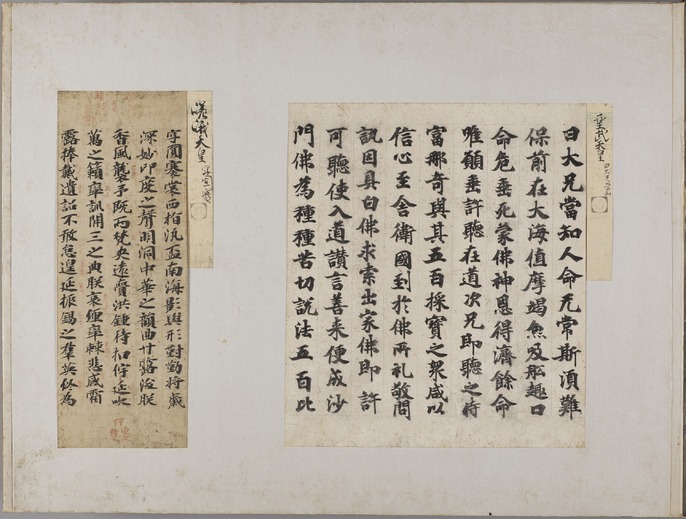 聖武天皇
曰大兄當知人命无常斯須難
保前在大海值摩竭魚及船趣口
命危垂死蒙佛神恩得濟餘命
唯願垂許聽在道次兄即聽之時
富那奇與其五百採寶之衆咸以
信心至舍衛國到於佛所礼敬問
訊因具白佛求索出家佛即許
可聽使入道讚言善來便成沙
門佛為種種苦切說法五百比
嵯峨天皇
西柏汎盃南海影與形對勤將歲
深妙印度之聲明洞中華之韻曲甘露洽朕
香風襲予既而梵矣遠齎洪鍾待扣佇延吹
萬之籟訊開三之典朕哀纏棘悲感霜
露捧戴遺詔不敢怠遑延振錫之群英終為